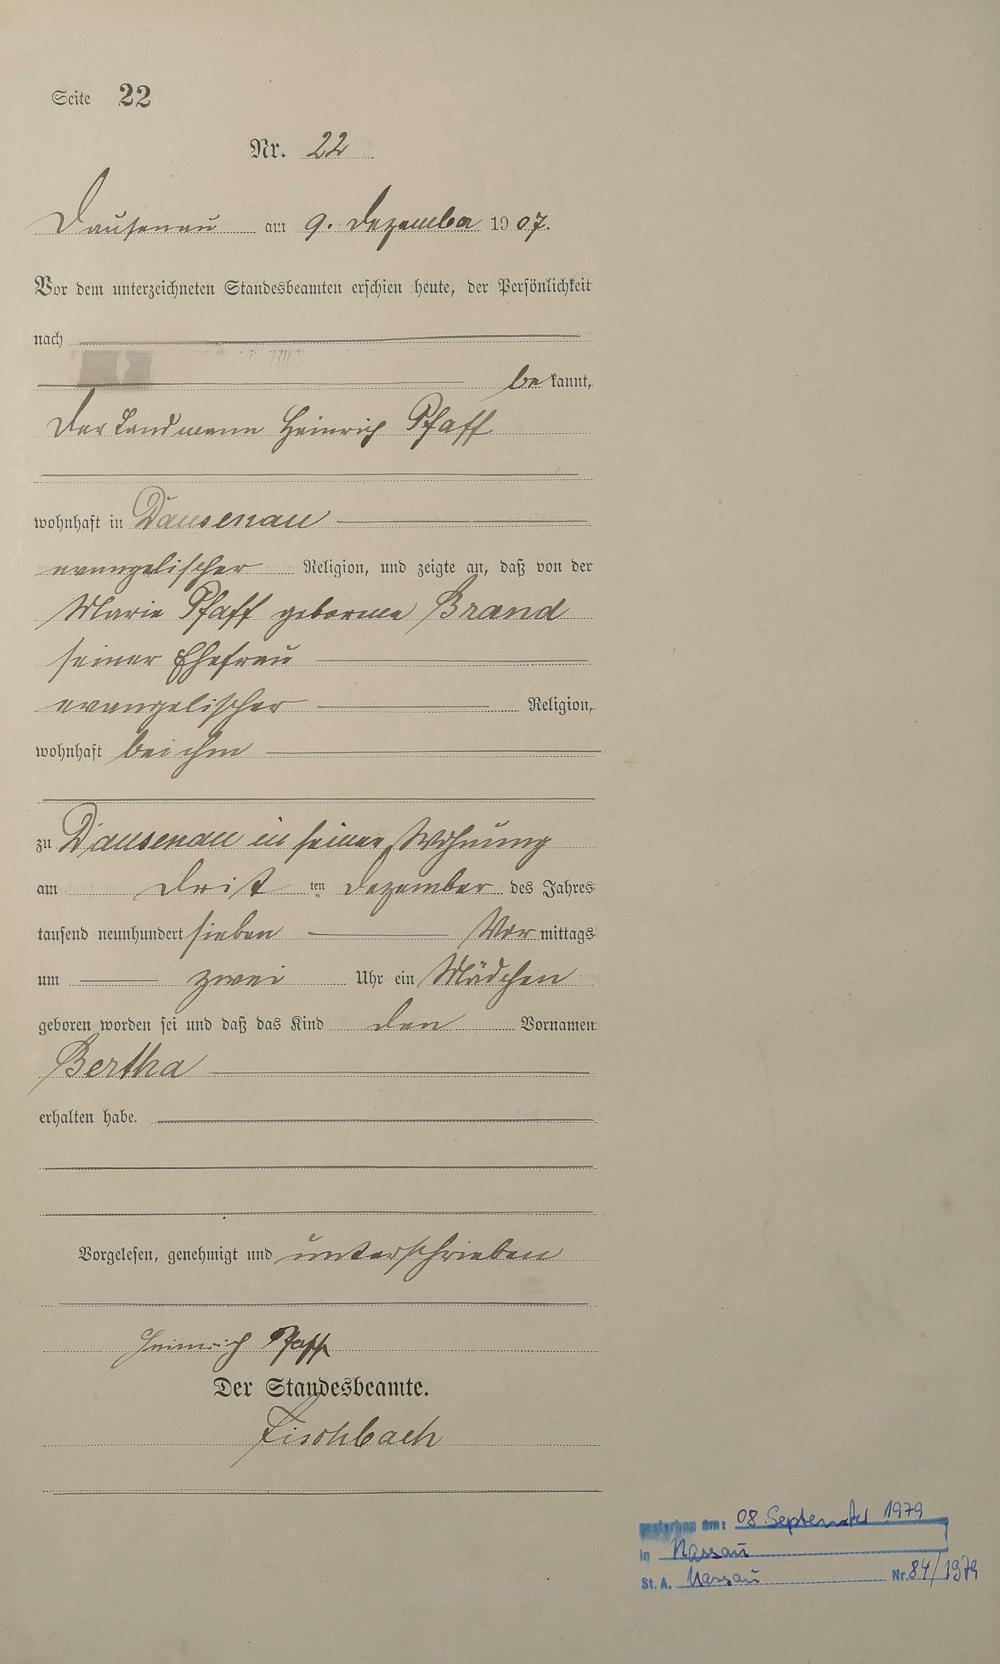 Seite 22
Nr. 22
Dausenau am 9. Dezember 1907.
Vor dem unterzeichneten Standesbeamten erschien heute, der Persönlichkeit
nach
bekannt,
der Landmann Heinrich Pfaff
wohnhaft in Dausenau
evangelischer Religion, und zeigte an, daß von der
Marie Pfaff geborene Brand
seiner Ehefrau
evangelischer Religion,
wohnhaft bei ihm
zu Dausenau in seiner Wohnung
am dritten Dezember des Jahres
tausend neunhundert sieben Vormittags
um zwei Uhr ein Mädchen
geboren worden sei und daß das Kind den Vornamen
Bertha
erhalten habe.
Vorgelesen, genehmigt und unterschrieben
Heinrich Pfaff
Der Standesbeamte.
Fischbach
gestorben am: 08. September 1979
in Nassau
St. A. Nassau Nr. 84/1979